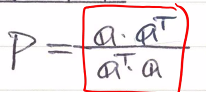 P = a · aᵀ / aᵀ · a